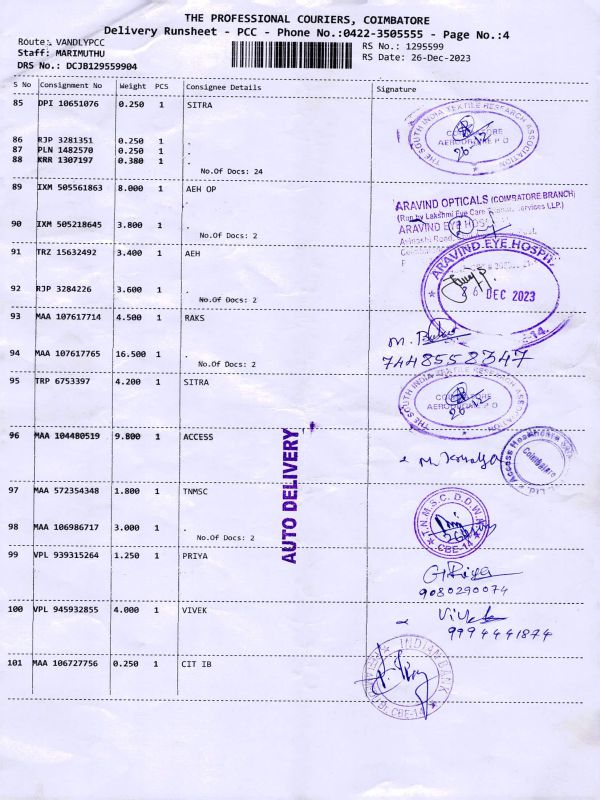 THE PROFESSIONAL COURIERS, COIMBATORE
Delivery Runsheet - PCC - Phone No.:0422-3505555 - Page No.:4
Route: VANDLYPCC
Staff: MARIMUTHU
DRS No.: DCJB129559904
RS No.: 1295599
RS Date: 26-Dec-2023
S No Consignment No Weight PCS Consignee Details Signature
85 DPI 10651076 0.250 1 SITRA
THE SOUTH INDIA TEXTILE RESEARCH ASSOCIATION
AERODROME P O
26-12
86 RJP 3281351 0.250 1 .
87 PLN 1482570 0.250 1 .
88 KRR 1307197 0.380 1 .
No.Of Docs: 24
89 IXM 505561863 8.000 1 AEH OP
ARAVIND OPTICALS (COIMBATORE BRANCH)
(Run by Lakshmi Eye Care Services LLP.)
ARAVIND EYE HOSPI
90 IXM 505218645 3.800 1 .
No.Of Docs: 2
91 TRZ 15632492 3.400 1 AEH
ARAVIND EYE HOSPITAL
26 DEC 2023
92 RJP 3284226 3.600 1 .
No.Of Docs: 2
93 MAA 107617714 4.500 1 RAKS
7448552347
94 MAA 107617765 16.500 1 .
No.Of Docs: 2
95 TRP 6753397 4.200 1 SITRA
THE SOUTH INDIA TEXTILE RESEARCH ASSOCIATION
COIMBATORE
AERODROME P O
26-12
96 MAA 104480519 9.800 1 ACCESS
Access Healthcare
Coimbatore
AUTO DELIVERY
97 MAA 572354348 1.800 1 TNMSC
T.N.M.S.C. D.D.W.
CBE-14
98 MAA 106986717 3.000 1 .
No.Of Docs: 2
99 VPL 939315264 1.250 1 PRIYA
G Priya
9080290074
100 VPL 945932855 4.000 1 VIVEK
Vivek
9994441874
101 MAA 106727756 0.250 1 CIT IB
INDIAN BANK
CBE-14